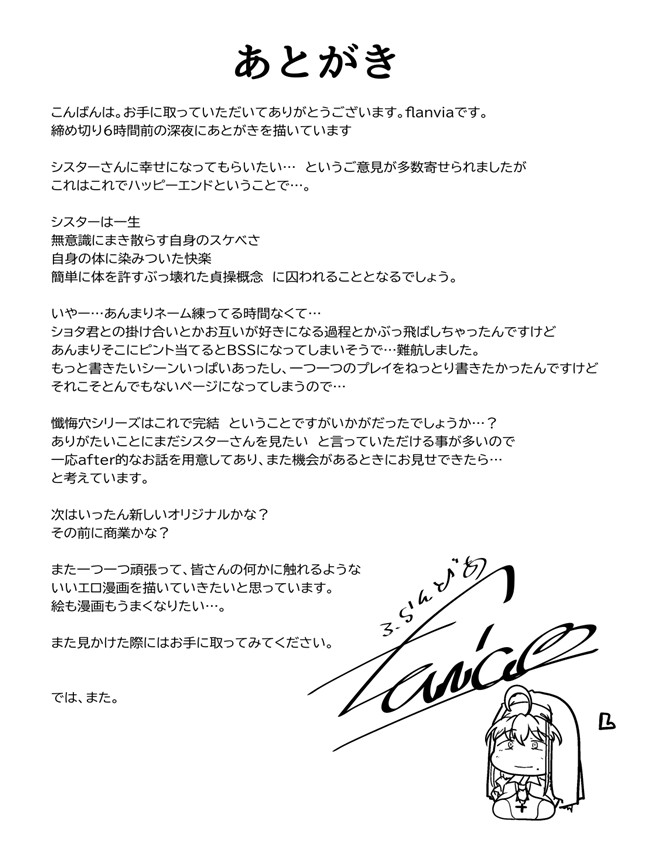 あとがき
こんばんは。お手に取っていただいてありがとうございます。flanviaです。
締め切り6時間前の深夜にあとがきを描いています
シスターさんに幸せになってもらいたい… というご意見が多数寄せられましたが
これはこれでハッピーエンドということで…。
シスターは一生
無意識にまき散らす自身のスケベさ
自身の体に染みついた快楽
簡単に体を許すぶっ壊れた貞操概念 に囚われることとなるでしょう。
いやー…あんまりネーム練ってる時間なくて…
ショタ君との掛け合いとかお互いが好きになる過程とかぶっ飛ばしちゃったんですけど
あんまりそこにピント当てるとBSSになってしまいそうで…難航しました。
もっと書きたいシーンいっぱいあったし、一つ一つのプレイをねっとり書きたかったんですけど
それこそとんでもないページになってしまうので…
懺悔穴シリーズはこれで完結 ということですがいかがだったでしょうか…?
ありがたいことにまだシスターさんを見たい と言っていただける事が多いので
一応after的なお話を用意してあり、また機会があるときにお見せできたら…
と考えています。
次はいったん新しいオリジナルかな?
その前に商業かな?
また一つ一つ頑張って、皆さんの何かに触れるような
いいエロ漫画を描いていきたいと思っています。
絵も漫画もうまくなりたい…。
また見かけた際にはお手に取ってみてください。
では、また。
ふらんびあ